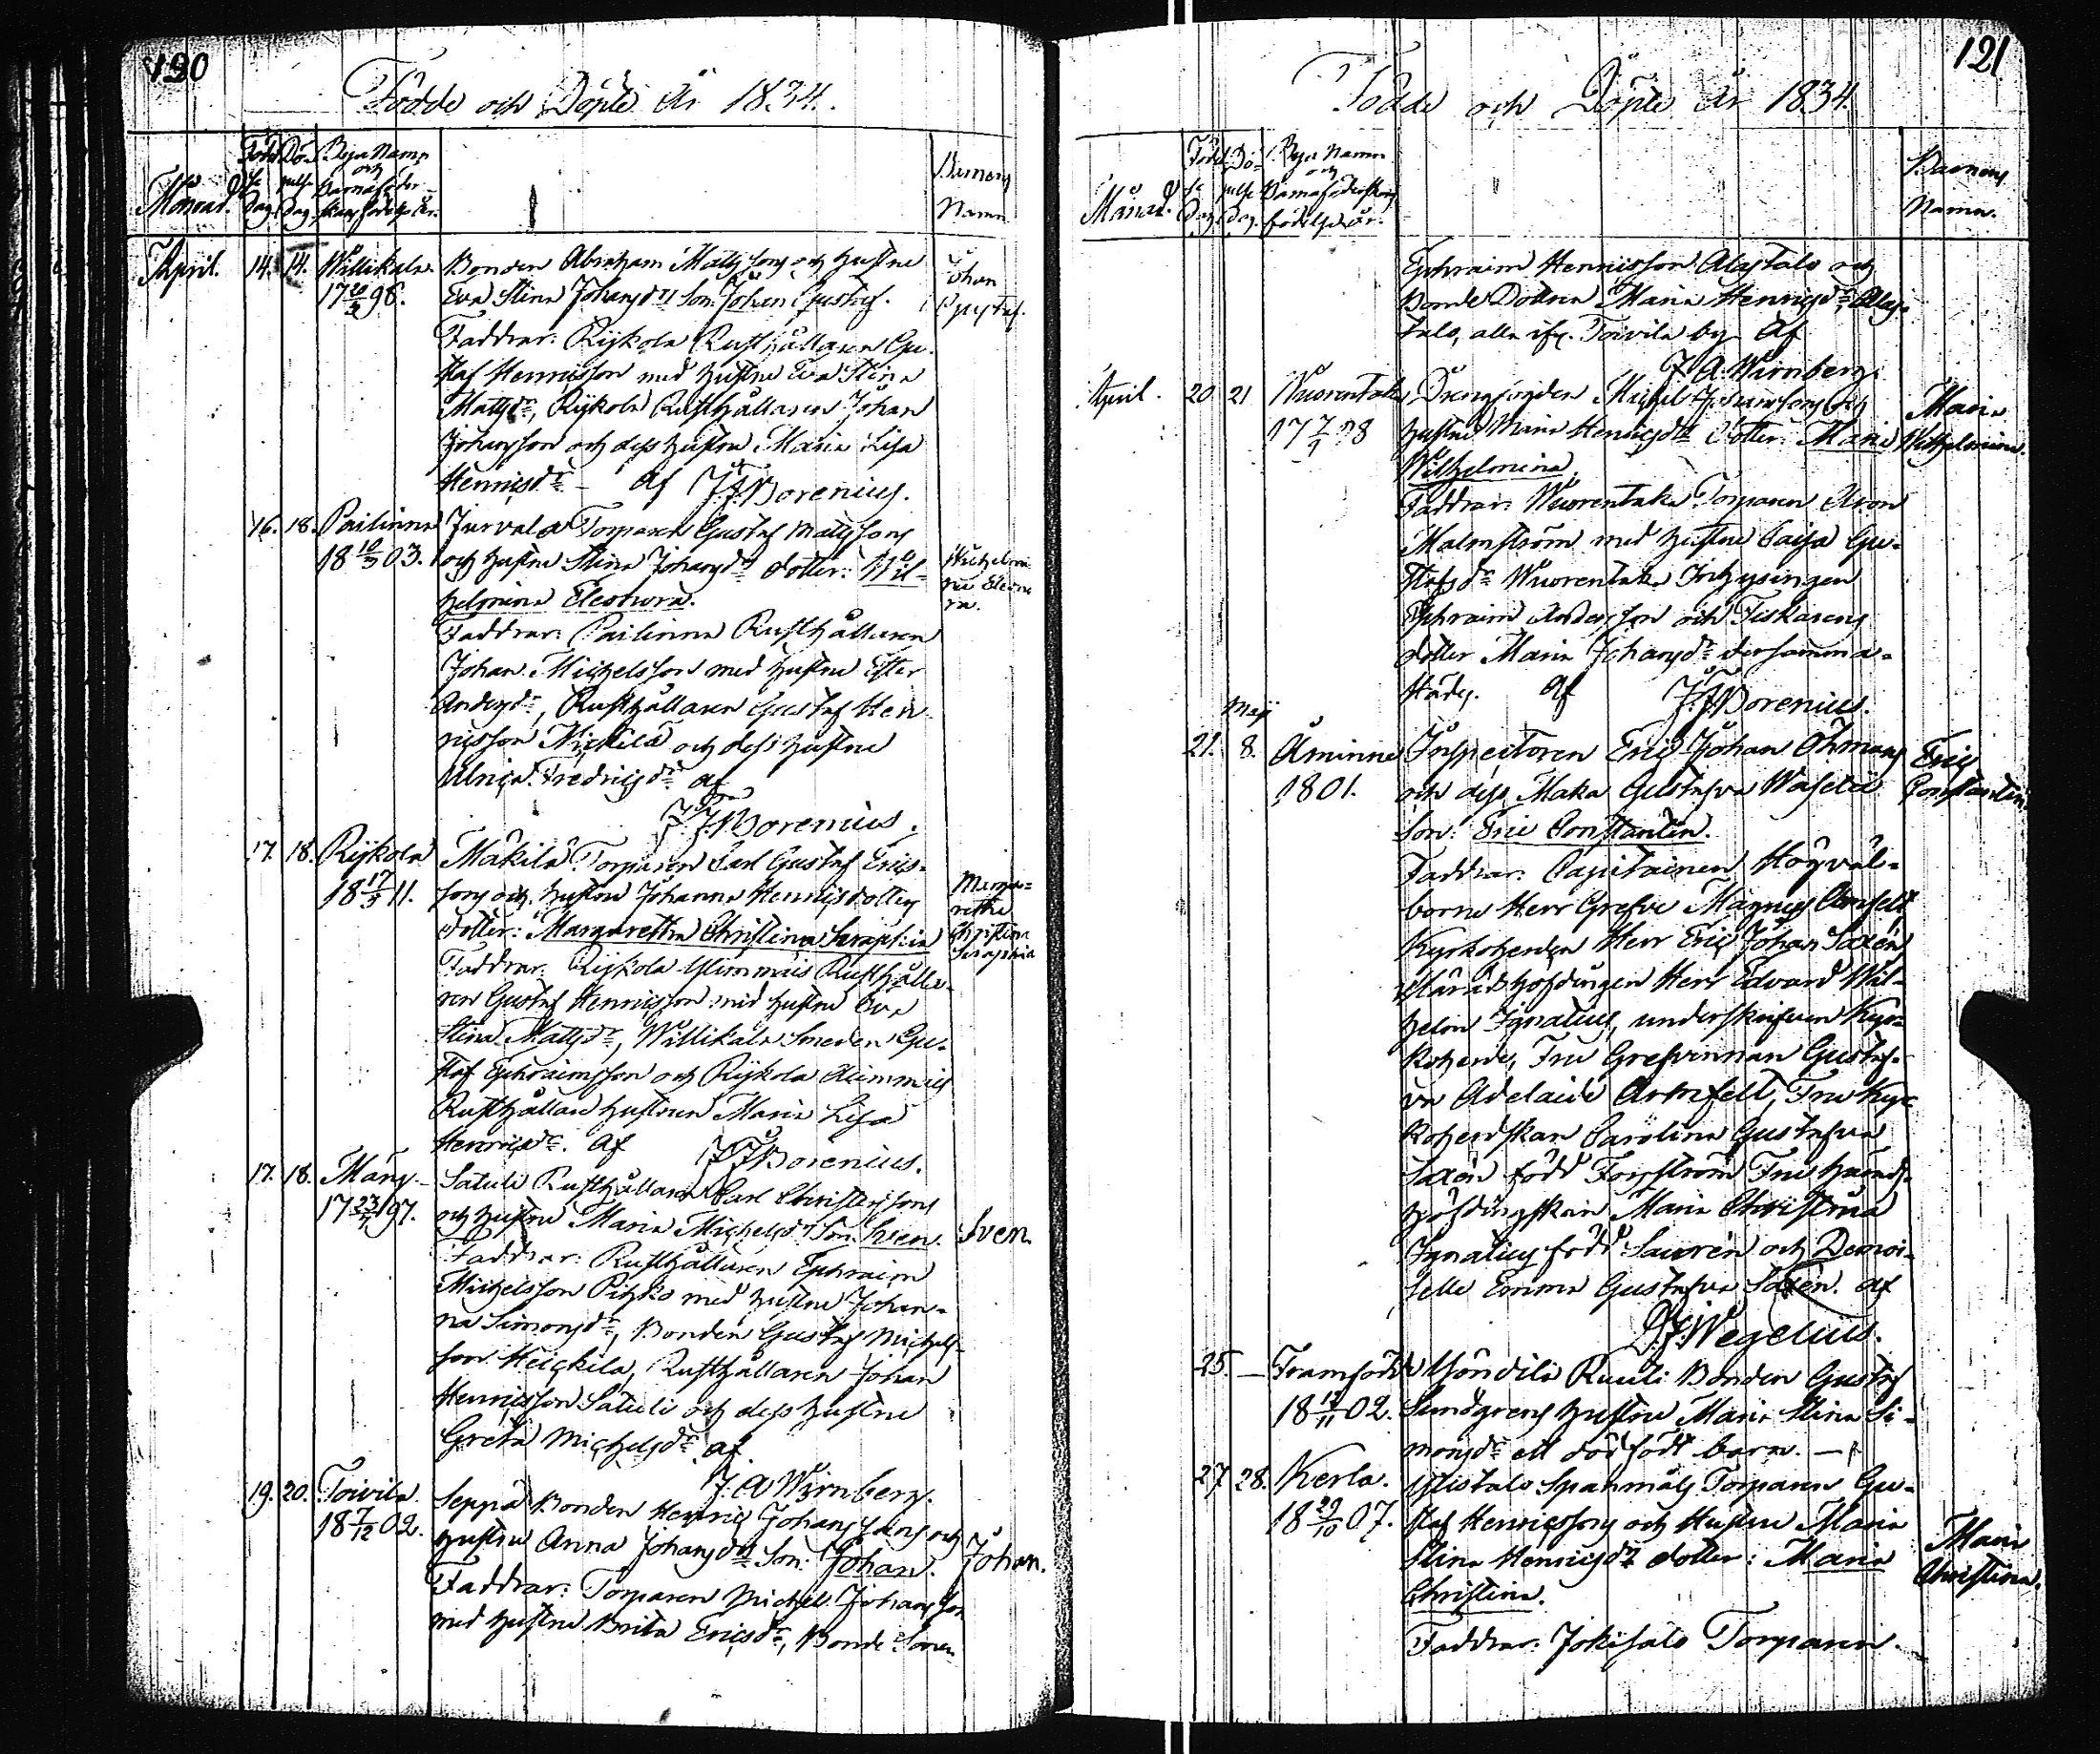 120
Födde och Döpte År 1834.
Månad.
Födel se Dag
Dö- pelse Dag
Byar Namn och Barnaföder- skans födelse År.
Barnens Namn
April. 14. 14. Willikala. Bonden Abraham Mattssons och hustru Johan
17 20/3 98. Eva Stina Johansdrs Son: Johan Gustaf. Gustaf.
Faddrar: Rijkola Rusthållaren Gu-
staf Henricsson med hustru Eva Stina
Mattsdr, Rijkola Rusthållaren Johan
Johansson och dess hustru Maria Lisa
Henricsdr. - Af J. J. Borenius.
16. 18. Pailinna Jurvala Torparen Gustaf Mattssons
18 10/3 03. och hustru Stina Johansdrs dotter: Wil- Wilhelmi
helmina Eleonora. na Eleono
ra.
Faddrar: Pailinna Rusthållaren
Johan Michelsson med hustru Ester
Andersdr, Rusthållaren Gustaf Hen-
ricsson Mickilä och dess hustru
Ulrica Fredricsdr af
J. J. Borenius.
17. 18. Rijkola Mäkilä Torparen Carl Gustaf Erics-
18 17/3 11. sons och hustru Johanna Henricsdotters Marga-
dotter: Margaretha Christina Seraphia retha
Christina
Seraphia
Faddrar: Rijkola Ylimmäis Rusthålla-
ren Gustaf Henricsson med hustru Eva
Stina Mattsdr, Willikala Smeden Gu-
staf Ephraimsson och Rijkola Alimmäis
Rusthållare hustrun Maria Lisa
Henricsdr. Af J J Borenius.
17. 18. Märy. Satuli Rusthållaren Carl Christerssons
17 23/7 97. och hustru Maria Michelsdrs Son: Sven. Sven.
Faddrar: Rusthållaren Ephraim
Michelsson Pitko med hustru Johan-
na Simonsdr, Bonden Gustaf Michels-
son Heickilä, Rusthållaren Johan
Henricsson Satuli och dess hustru
Greta Michelsdr af
J. A Wirnberg.
19. 20. Toivila Seppä Bonden Henric Johanssons och
18 7/12 02. hustru Anna Johansdrs Son: Johan. Johan.
Faddrar: Torparen Michel Johansson
med hustru Brita Ericsdr, Bonde Sonen
121
Födde och Döpte År 1834.
Månad.
Födel se Dag
Dö- pelse Dag.
Byar Namn och Barnaföderskans födelse År.
Barnens Namn.
Ephraim Henricsson Alastalo och
Bonde Dottren Maria Henricsdr Alas-
talo, alla ifr. Toivila by Af
J. A. Wirnberg.
April. 20 21 Wuorentaka Drengsonden Michel Johanssons och Maria
17 7/9 98 hustru Maria Henricsdrs Dotter: Maria Wilhelmina.
Wilhelmina.
Faddrar: Wuorentaka Torparen Aron
Malmström med hustru Caisa Gu-
stafsdr Wuorentaka Inhysingen
Ephraim Andersson och Fiskarens
dotter Maria Johansdr dersamma-
städes. af J. J. Borenius.
Maj
21. 8. Åminne Inspectoren Eric Johan Öhmans Eric
1801. och dess Maka Gustafva Wahelii Constantin
Son: Eric Constantin.
Faddrar: Capitainen Högväl-
borne Herr Grefve Magnus Armfelt
Kyrkoherden Herr Eric Johan Saxén,
Häradshöfdingen Herr Edvard Wil-
helm Ignatius, underskrifven Kyr-
koherde, Fru Grefvinnan Gustaf-
va Adelaide Armfelt, Fru Kyr-
koherdskan Carolina Gustafva
Saxén född Forsström Fru härads-
höfdingskan Maria Christina
Ignatius född Saurén och Demoi-
selle Emma Gustafva Saxén. af
Wegelius.
25. — Framfödde Yöndilä Ruuti Bonden Gustaf
18 12/11 02. Sundgrens hustru Maria Stina Si-
monsdr ett dödfödt barn. —
27. 28. Kerla. Ylistalo Spanmåls Torparen Gu-
18 29/10 07. staf Henricssons och Hustru Maria Maria
Stina Henricsdrs dotter: Maria Christina.
Christina.
Faddrar: Jokisalo Torparen